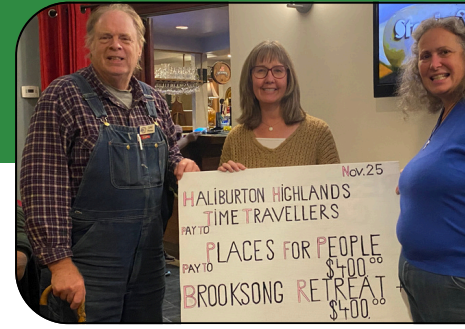 Nov. 25
HALIBURTON HIGHLANDS
TIME TRAVELLERS
PAY TO
PLACES FOR PEOPLE
$400.00
PAY TO
BROOKSONG RETREAT +
$400.00